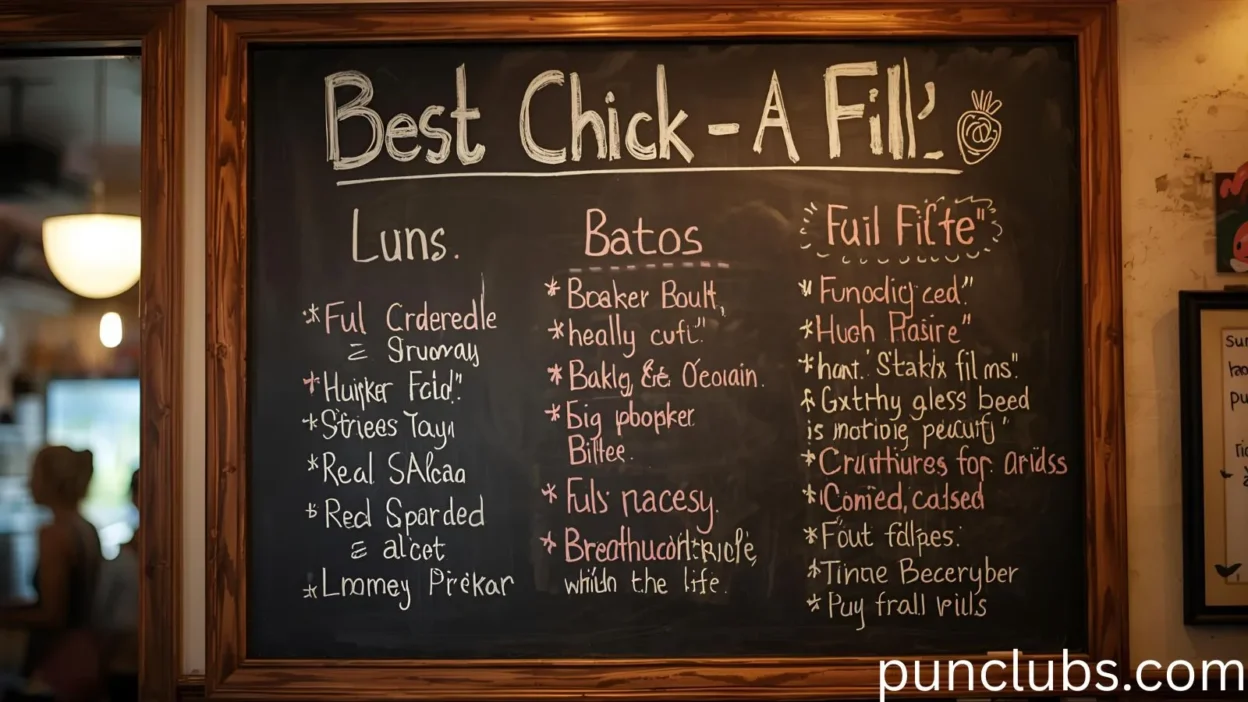 Best Chick-A Fill'
Luns.
*Ful Crderedle
= Gruoray
*Huipker Fcid".
*Striees Tayn
*Real SAlcaa
*Red Sparded
= alcet
*Lnomey Pirekar
Batos
*Boaker Boult,
*heally cuft."
*Baklg, &te Oeorain.
*Big pboopker
Biltee.
*Fuls nacesy.
whildn the life.
Fuil Fifte"
*Funodicj ced."
*Huch Rasire"
*hant. Stakix films".
*Gxtthy gless beed
is motivie, pecuifj"
*Cruithiures for aridss
*Comied, catsed
*Fout fallpes:
*Tinne Beceryber
*Puy frall vills
Sun
pu
punclubs.com